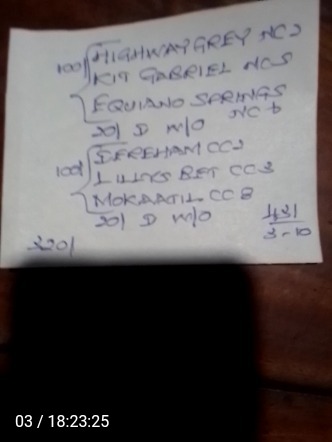 100/ HIGHWAY GREY NC2
KIT GABRIEL NC5
EQUIANO SPRINGS
NC6
20/ D W/O
100/ DEREHAM CC2
LILLYS BET CC3
MOKAATIL CC8
20/ D W/O
431
3-10
220/
03 / 18:23:25